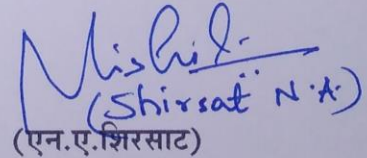 (Shirsat N.A.)
(एन.ए.शिरसाट)